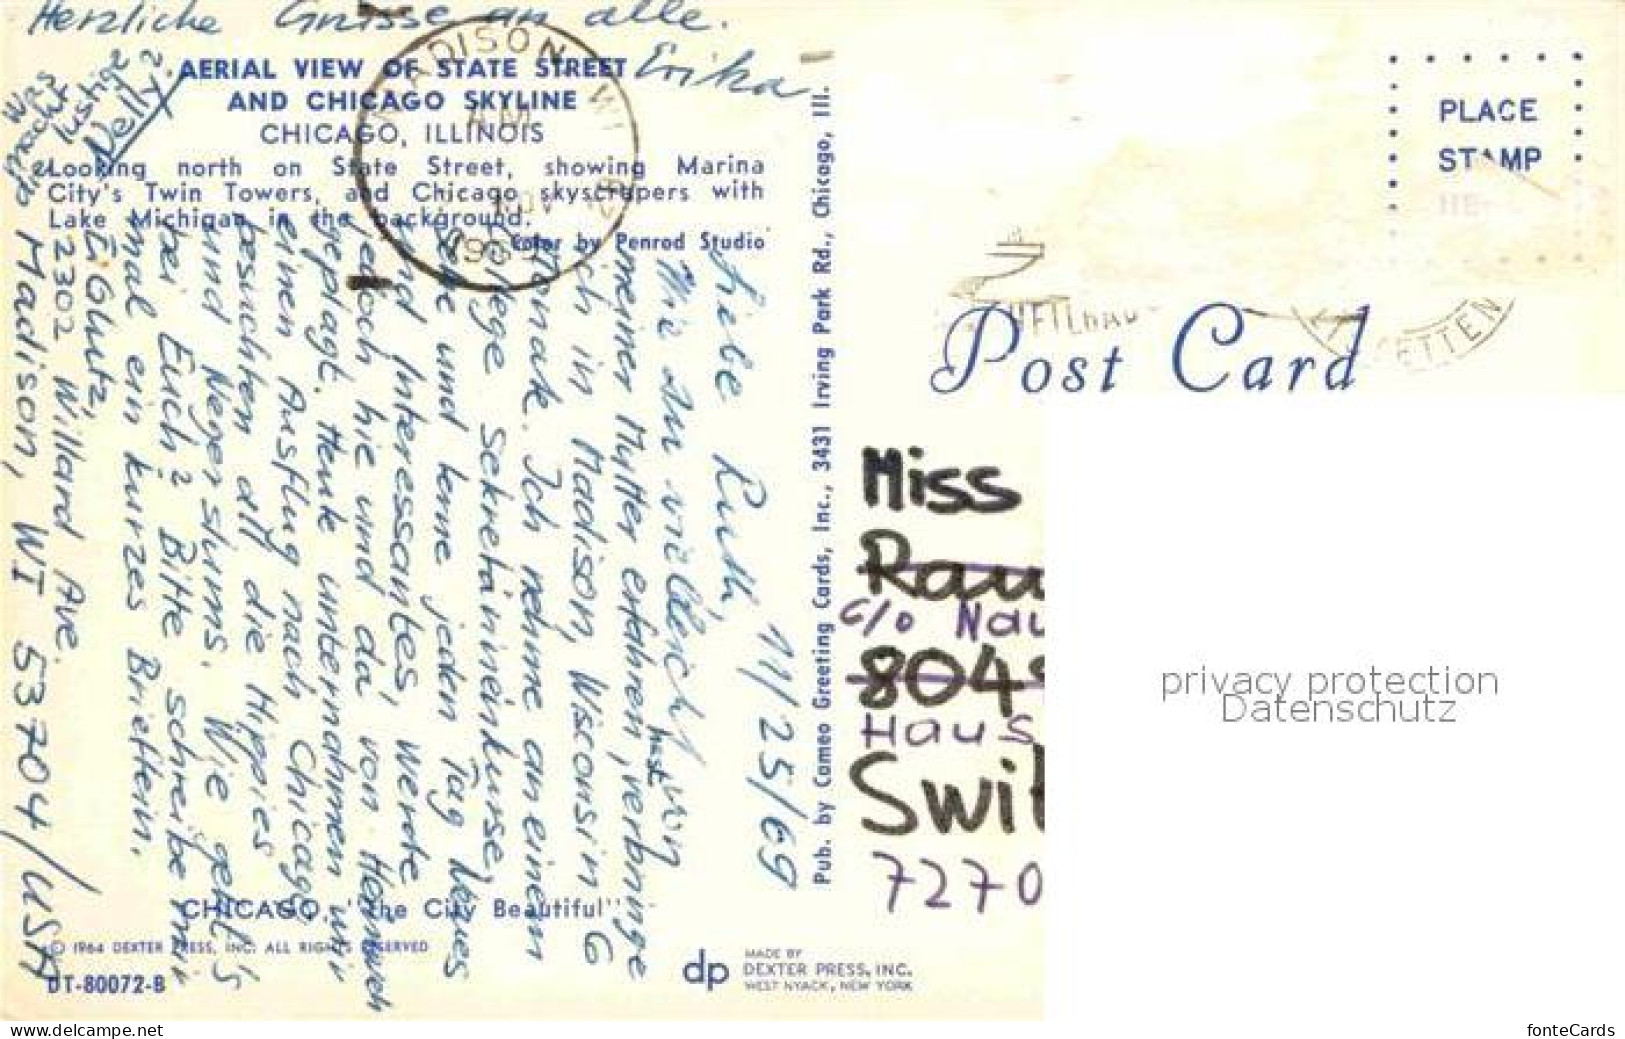 Herzliche Grüsse an alle.
Erika
Was
macht
lustige
Nelly?
AERIAL VIEW OF STATE STREET
AND CHICAGO SKYLINE
CHICAGO, ILLINOIS
Looking north on State Street, showing Marina
City's Twin Towers, and Chicago skyscrapers with
Lake Michigan in the background.
Color by Penrod Studio
MADISON, WI
AM
1969
11/25/69
Liebe Ruth,
Wie Du vielleicht von
meiner Mutter erfahren hast, verbringe
ich in Madison, Wisconsin 6
Monate. Ich nehme an einem
College Sekretärineinkurse,
und lerne jeden Tag Neues
und Interessantes, werde
jedoch hie und da von Heimweh
geplagt. Heute unternahmen wir
einen Ausflug nach Chicago,
besuchten all die Hippies
und Negerslums. Wie geht's
bei Euch? Bitte schreibe mir
mal ein kurzes Brieflein.
E. Glutz,
2302 Willard Ave.
Madison, WI 53704/USA
CHICAGO, "The City Beautiful"
© 1964 DEXTER PRESS, INC. ALL RIGHTS RESERVED
DT-80072-B
Pub. by Cameo Greeting Cards, Inc., 3431 Irving Park Rd., Chicago, Ill.
dp
MADE BY
DEXTER PRESS, INC.
WEST NYACK, NEW YORK
PLACE
STAMP
HERE
Post Card
Miss
Rau
c/o Nau
8048
Haus
Swit
7270
privacy protection
Datenschutz
www.delcampe.net
fonteCards